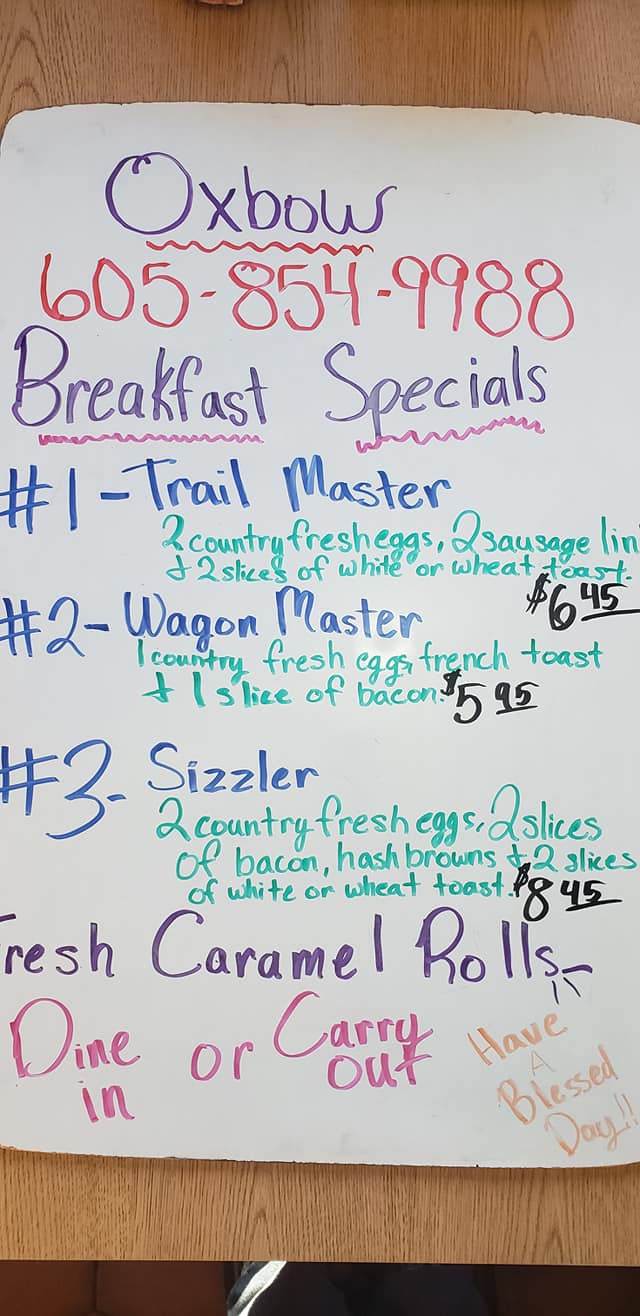 Oxbow
605-854-9988
Breakfast Specials
#1-Trail Master
2 country fresh eggs, 2 sausage lin
+ 2 slices of white or wheat toast.
$6 45
#2- Wagon Master
1 country fresh eggs, french toast
+ 1 slice of bacon. $5 95
#3- Sizzler
2 country fresh eggs, 2 slices
of bacon, hash browns + 2 slices
of white or wheat toast. $8 45
resh Caramel Rolls-
Dine in or Carry out
Have
A
Blessed
Day!!